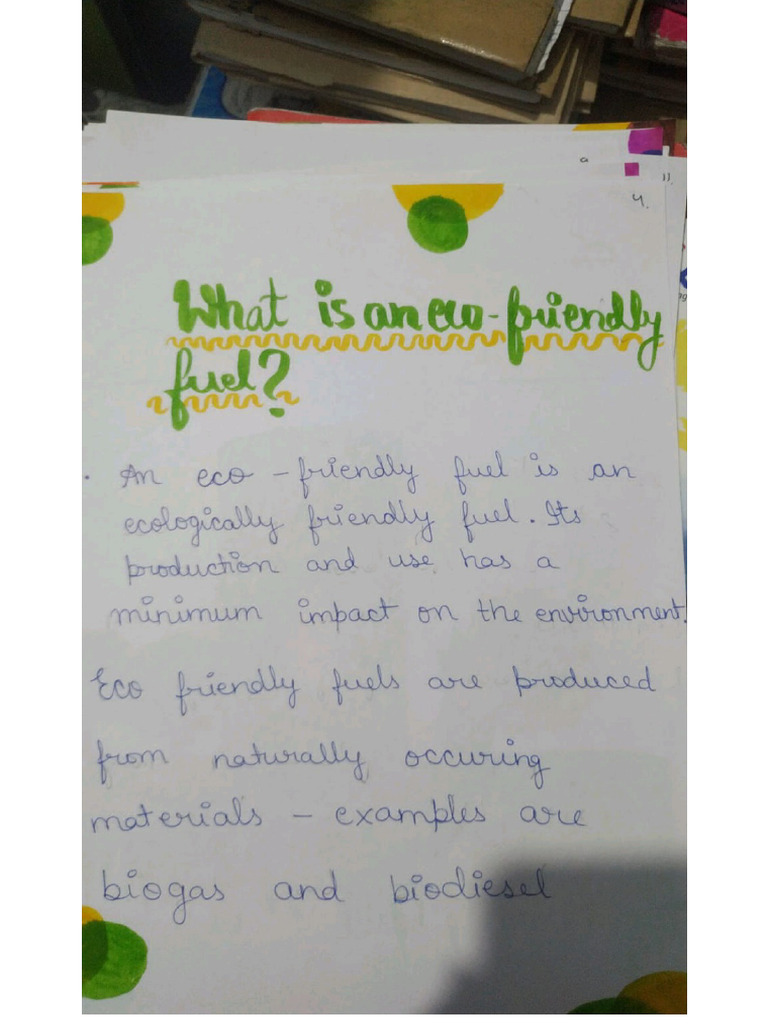 4.
What is an eco-friendly
fuel?
. An eco-friendly fuel is an
ecologically friendly fuel. Its
production and use has a
minimum impact on the environment.
Eco friendly fuels are produced
from naturally occuring
materials - examples are
biogas and biodiesel